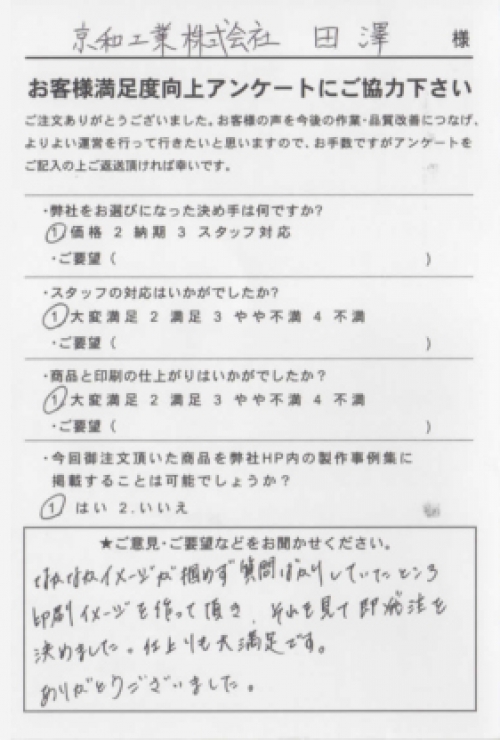 京和工業株式会社 田澤 様
お客様満足度向上アンケートにご協力下さい
ご注文ありがとうございました。お客様の声を今後の作業・品質改善につなげ、
よりよい運営を行って行きたいと思いますので、お手数ですがアンケートを
ご記入の上ご返送頂ければ幸いです。
・弊社をお選びになった決め手は何ですか?
1 価格 2 納期 3 スタッフ対応
・ご要望( )
・スタッフの対応はいかがでしたか?
1 大変満足 2 満足 3 やや不満 4 不満
・ご要望( )
・商品と印刷の仕上がりはいかがでしたか?
1 大変満足 2 満足 3 やや不満 4 不満
・ご要望( )
・今回御注文頂いた商品を弊社HP内の製作事例集に
掲載することは可能でしょうか?
1 はい 2.いいえ
★ご意見・ご要望などをお聞かせください。
なかなかイメージが掴めず質問ばかりしていたところ
印刷イメージを作って頂き、それを見て即発注を
決めました。仕上りも大満足です。
ありがとうございました。